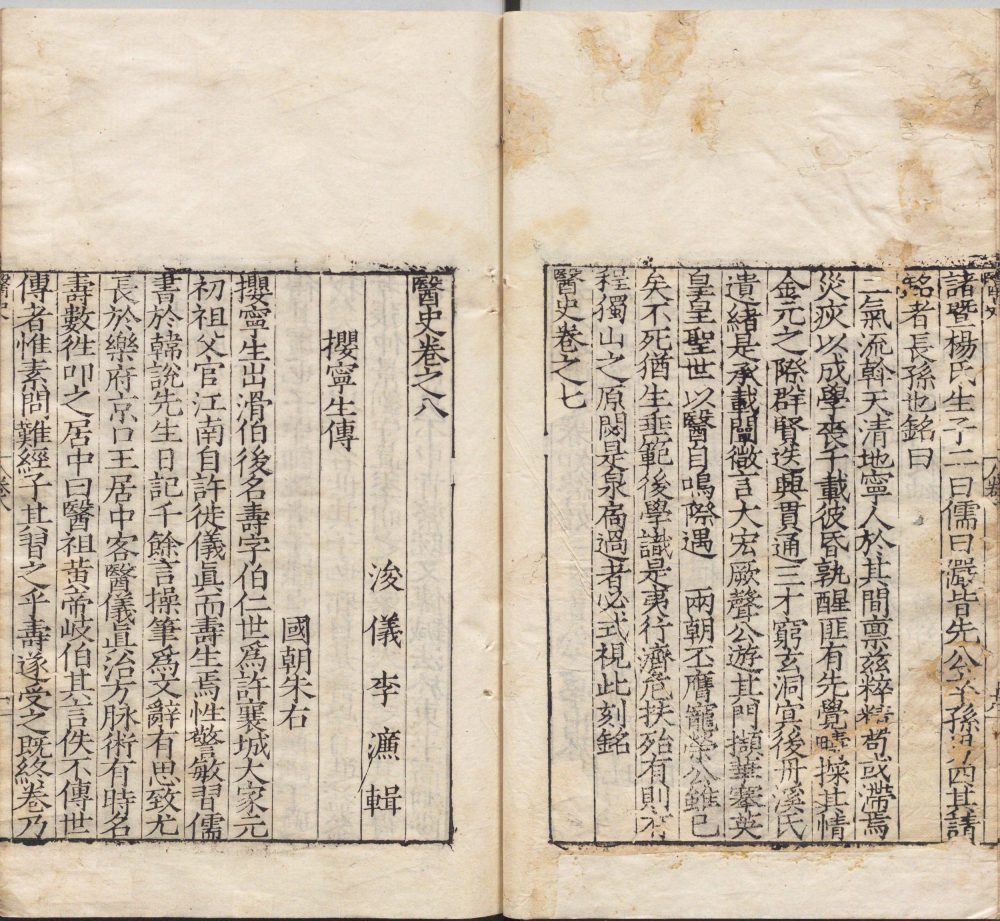 醫史
諸暨楊氏生子二曰儒曰皆先公孫其請
銘者長孫也銘曰
二氣流斡天清地寧人於其間稟茲粹精苟或滯焉
災疢以成學喪千載彼昏孰醒匪有先覺疇探其情
金元之際群賢迭興貫通三才窮玄洞冥後丹溪氏
遺緒是承載闡微言大宏厥聲公遊其門擷華搴英
皇皇聖世以醫自鳴際遇　兩朝丕膺寵榮公雖已
矣不死猶生垂範後學識是夷行濟危扶殆有則不
程獨山之原閟是泉扃過者必式視此刻銘
醫史卷之七
醫史卷之八
浚儀李濂輯
攖寧生傳
國朝朱右
攖寧生出滑伯後名壽字伯仁世爲許襄城大家元
初祖父官江南自許徙儀眞而壽生焉性警敏習儒
書於韓說先生日記千餘言操筆爲文辭有思致尤
長於樂府京口王居中客醫儀眞治方脉術有時名
壽數徃叩之居中曰醫祖黄帝岐伯其言佚不傳世
傳者惟素問難經子其習之乎壽遂受之既終卷乃
醫史
卷八
一